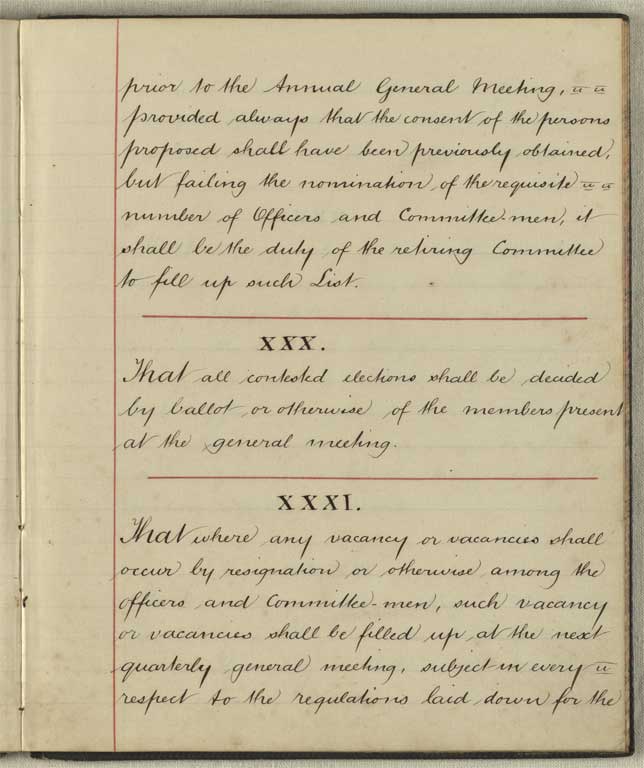 prior to the Annual General Meeting,
provided always that the consent of the persons
proposed shall have been previously obtained,
but failing the nomination of the requisite
number of Officers and Committee-men, it
shall be the duty of the retiring Committee
to fill up such List.
XXX.
That all contested elections shall be decided
by ballot or otherwise of the members present
at the general meeting.
XXXI.
That where any vacancy or vacancies shall
occur by resignation or otherwise among the
officers and Committee-men, such vacancy
or vacancies shall be filled up at the next
quarterly general meeting, subject in every
respect to the regulations laid down for the